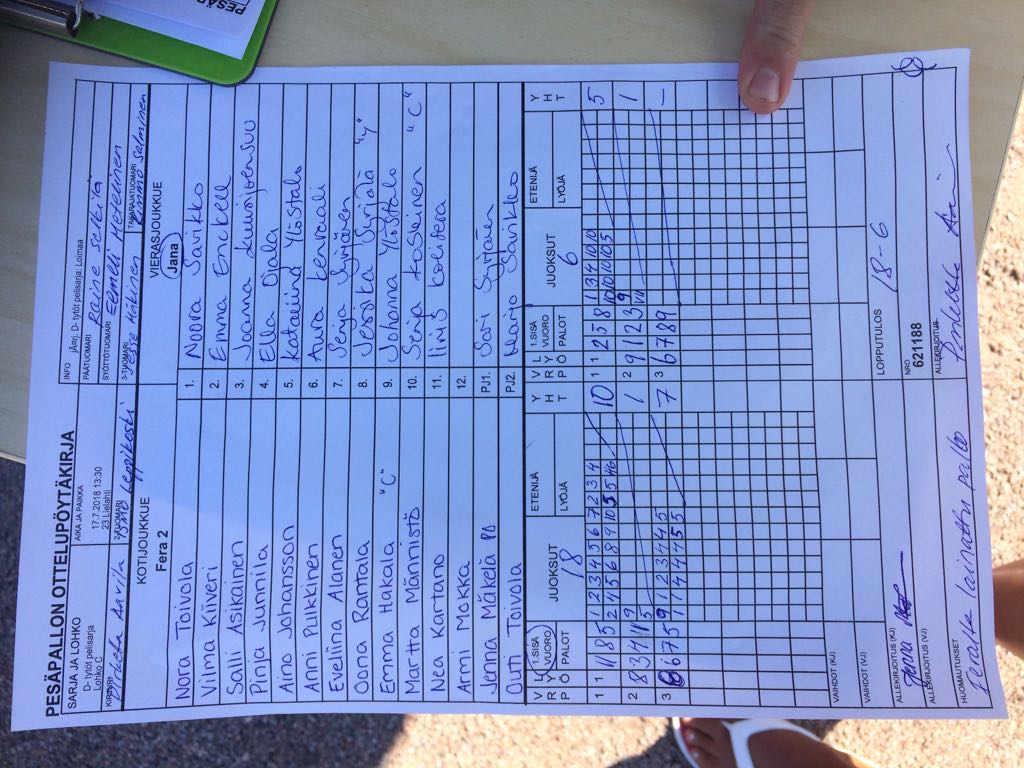 PESÄR
PESÄPALLON OTTELUPÖYTÄKIRJA
SARJA JA LOHKO
D- tytöt pelisarja
Lohko C
AIKA JA PAIKKA
17.7.2018 13:30
23 Lielahti
INFO
jÄrrj. D- tytöt pelisarja: Loimaa
PÄÄTUOMARI
SYÖTTÖTUOMARI Eemeli
KIRJURI Pirketta Aarvila
2-TUOMARI Leppikoski
3-TUOMARI Häkinen
TAKARAJATUOMARI Kimmo Salminen
KOTIJOUKKUE
Fera 2
VIERASJOUKKUE
(Jana)
Nora Toivola 1. Noora Sarikko
Vilma Kiiveri 2. Emma Enckell
Salli Asikainen 3. Joanna Kuusijoensuu
Pinja Junnila 4. Ella Ojala
Aino Johansson 5. Katariina Ylöstalo
Anni Pulkkinen 6. Aura
Eveliina Alanen 7. Senja Syrjänen
Oona Rantala 8. Jessika Syrjälä "y"
Emma Hakala "C" 9. Johanna Ylöstalo
Martta Männistö 10. Senja Koskeinen "C"
Nea Kartano 11. Iiris
Armi Mokka 12.
Jenna Mäkelä PJ1. Sari Syrjänen
Outi Toivola PJ2. Marjo Sarikko
V R P L Y Ö 1.SISÄ VUORO PALOT JUOKSUT 18 ETENIJÄ LYÖJÄ Y H T
V R P L Y Ö 1.SISÄ VUORO PALOT JUOKSUT 6 ETENIJÄ LYÖJÄ Y H T
1 1 11 8 5 1 2 3 4 5 6 7 2 3 4 10
2 4 5 6 8 9 10 5 5
2 8 3 4 11 9 1
5
3 6 7 5 9 1 2 3 4 4 5 7
1 1 4 4 4 5 5
1 1 2 5 8 1 3 4 10 10 5
10 10 10 5
2 9 1 2 3 9 1
3 6 7 8 9 –
VAIHDOT (KJ)
VAIHDOT (VJ)
LOPPUTULOS 18-6
ALLEKIRJOITUS (KJ) Jenna
NRO
621188
ALLEKIRJOITUS (VJ)
ALLEKIRJOITUS
HUOMAUTUKSET
lainattu pallo